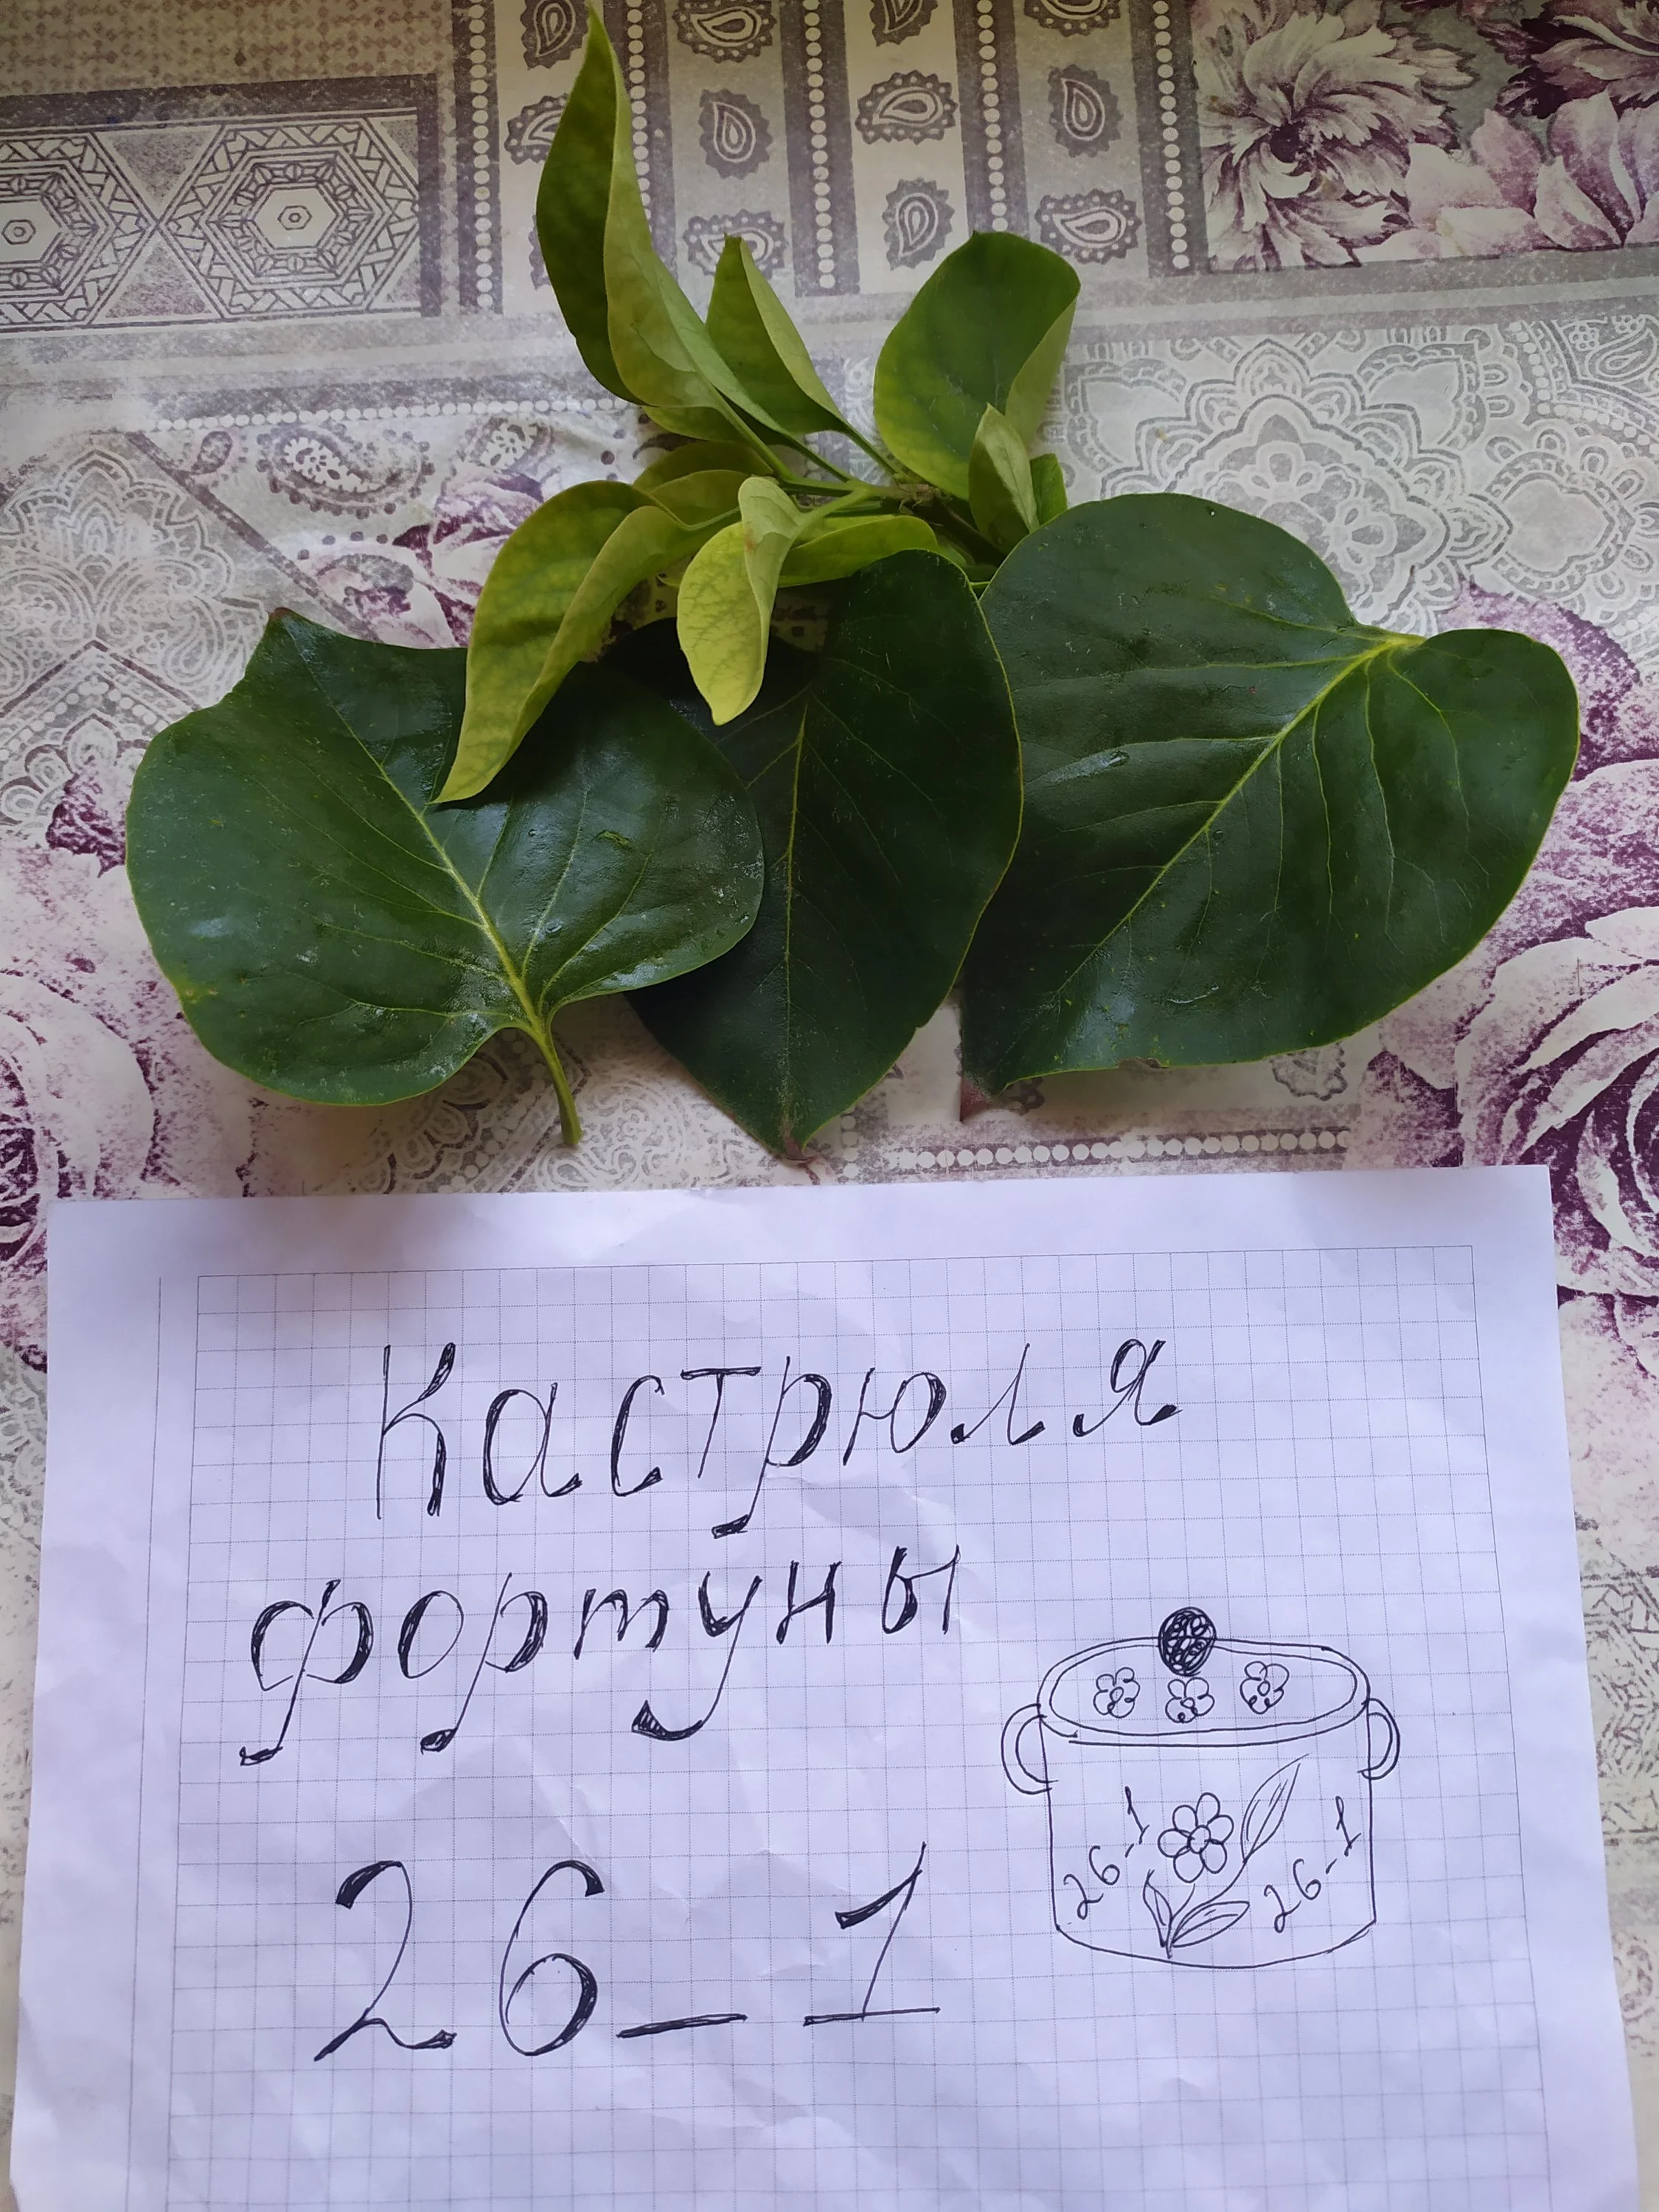 Кастрюля
фортуны
26_1
26_1
26_1